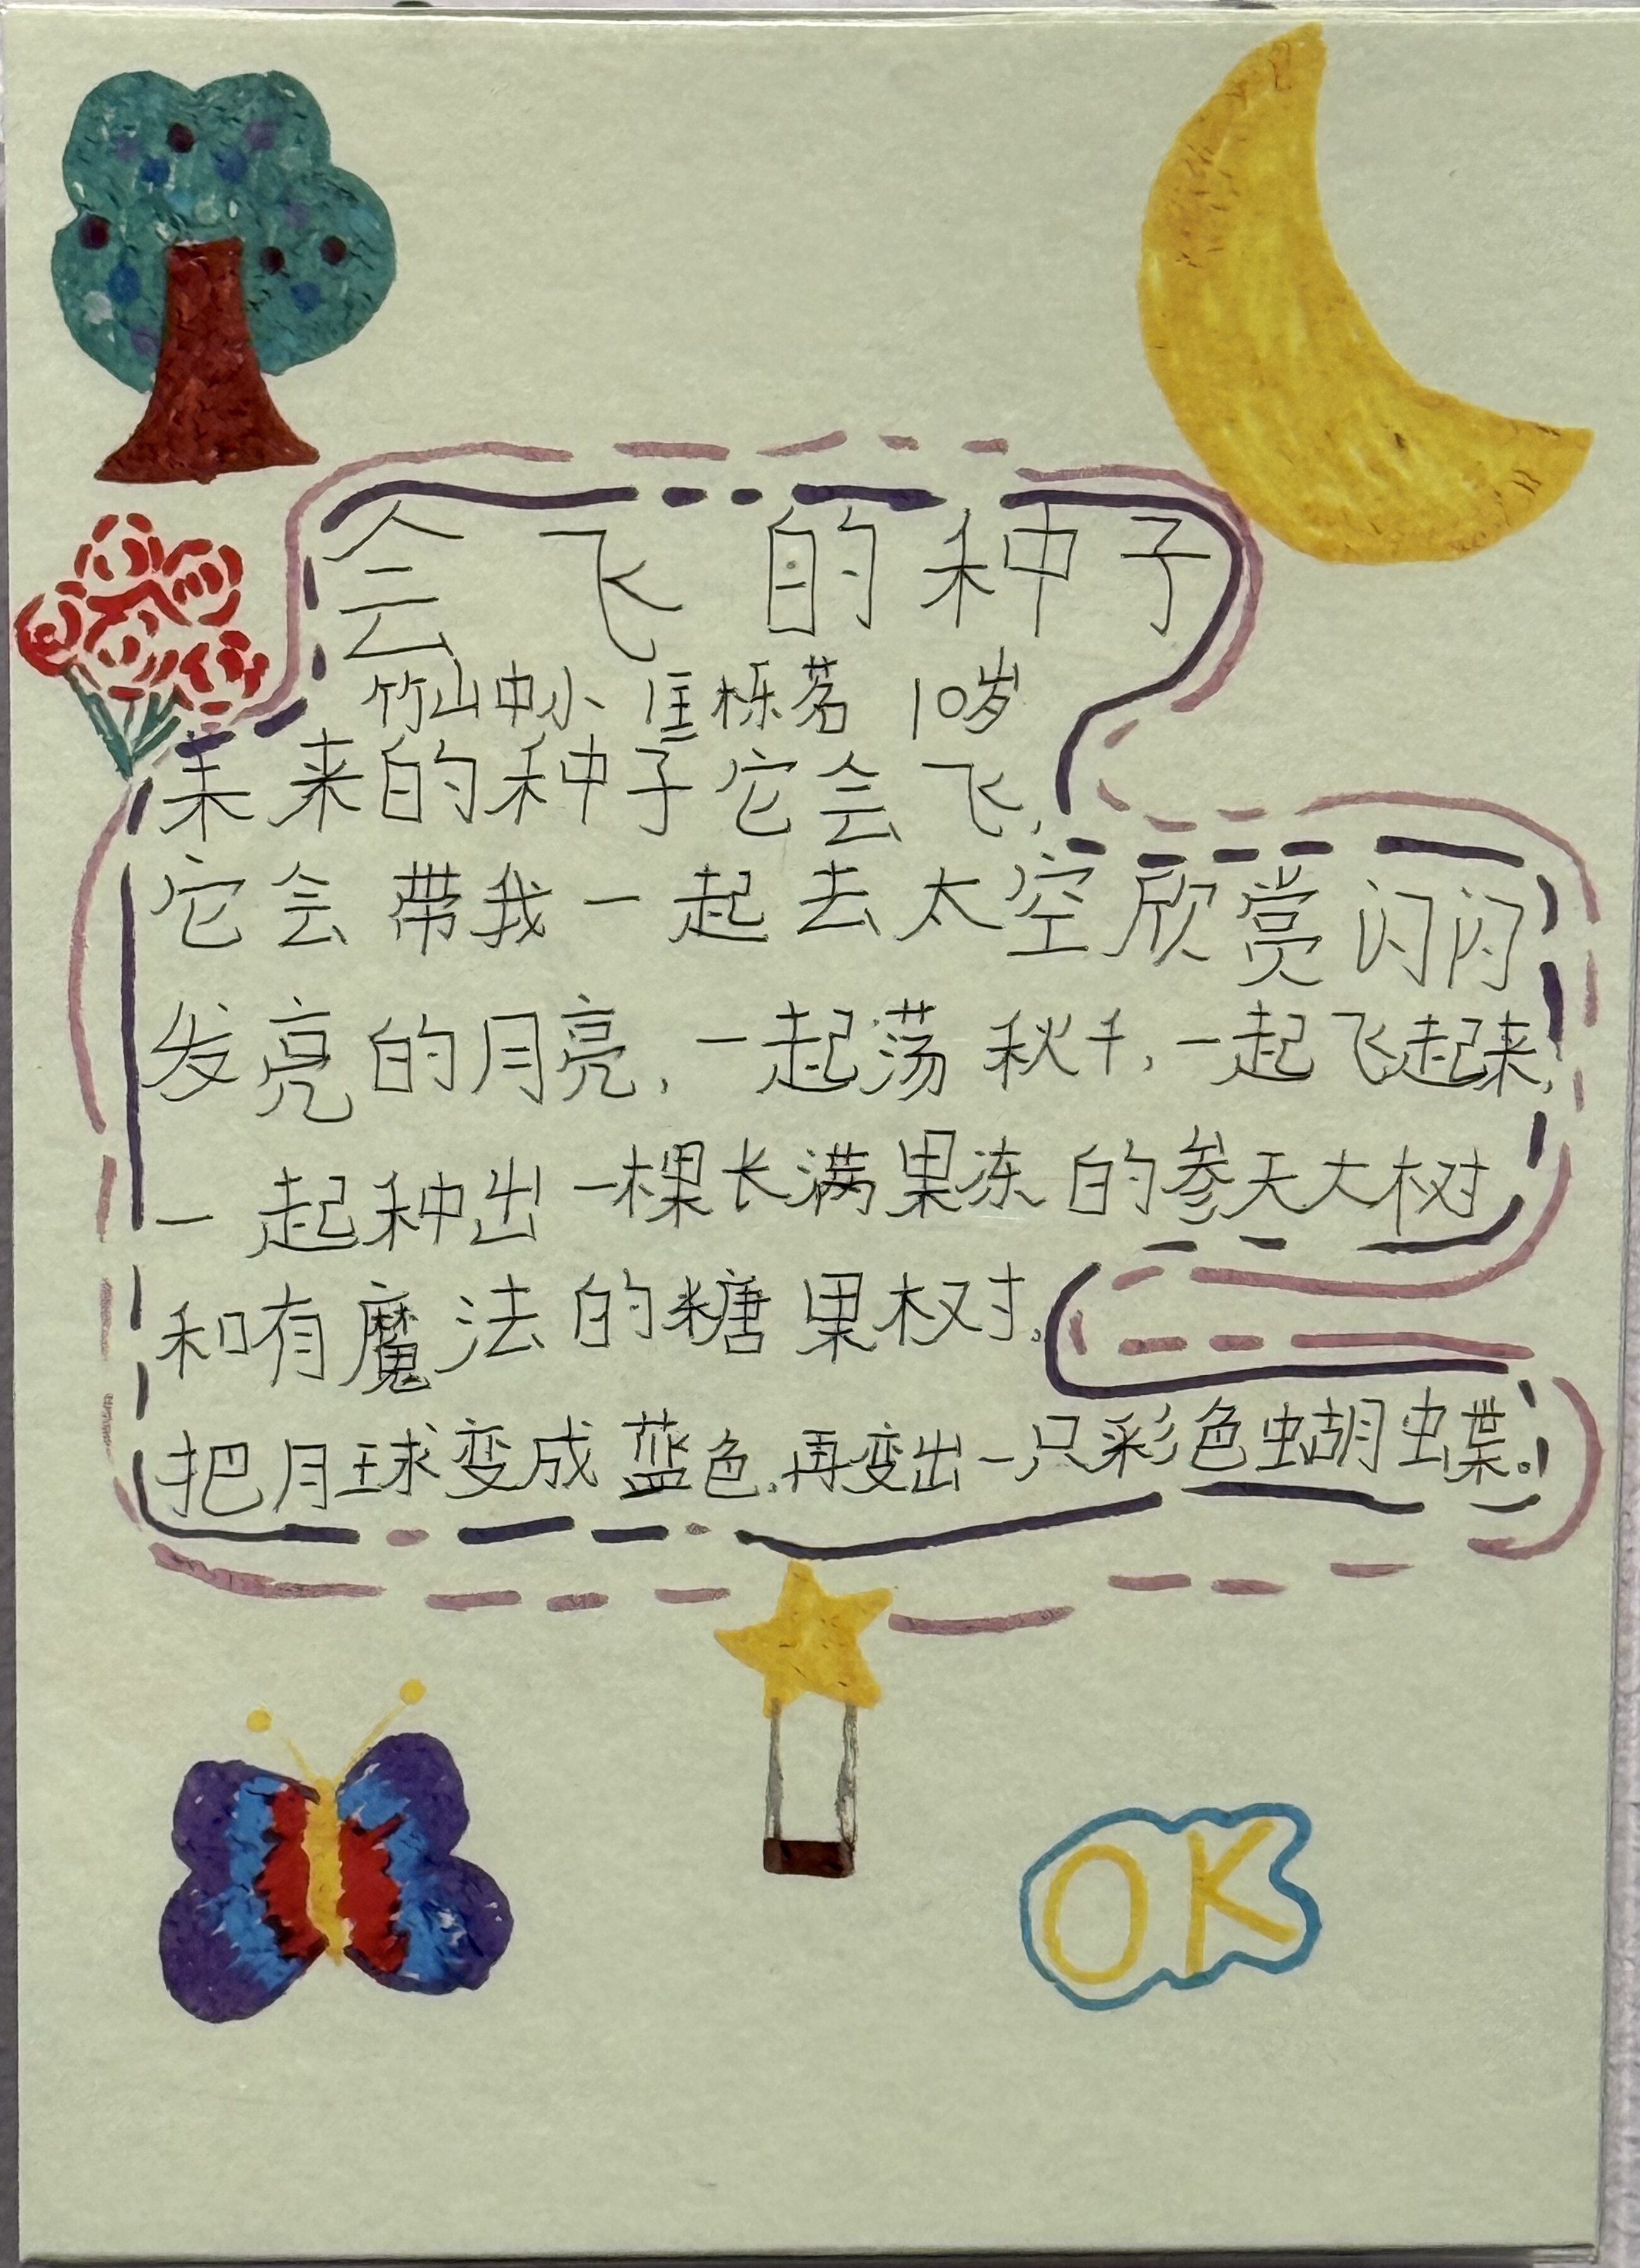 会飞的种子
竹山中小 匡栎茗 10岁
未来的种子它会飞,
它会带我一起去太空欣赏闪闪
发亮的月亮,一起荡秋千,一起飞起来,
一起种出一棵长满果冻的参天大树
和有魔法的糖果树。
把月球变成蓝色,再变出一只彩色蝴蝶。
OK